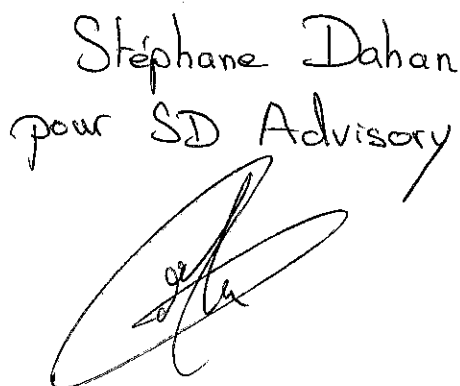 Stéphane Dahan
pour SD Advisory